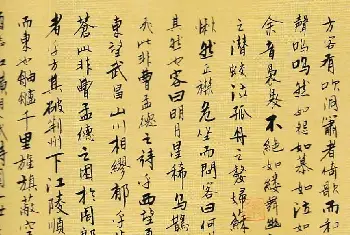 方客有吹洞簫者倚歌而和
聲嗚嗚然如怨如慕如泣如
余音裊裊不絕如縷舞
之潛蛟泣孤舟之嫠婦蘇
愀然正襟危坐而問客曰何
其然也客曰明月星稀烏鵲
飛此非曹孟德之詩乎西望
東望武昌山川相繆鬱乎
蒼此非曹孟德之困於周郎
者乎方其破荊州下江陵順
而東也舳艫千里旌旗蔽空